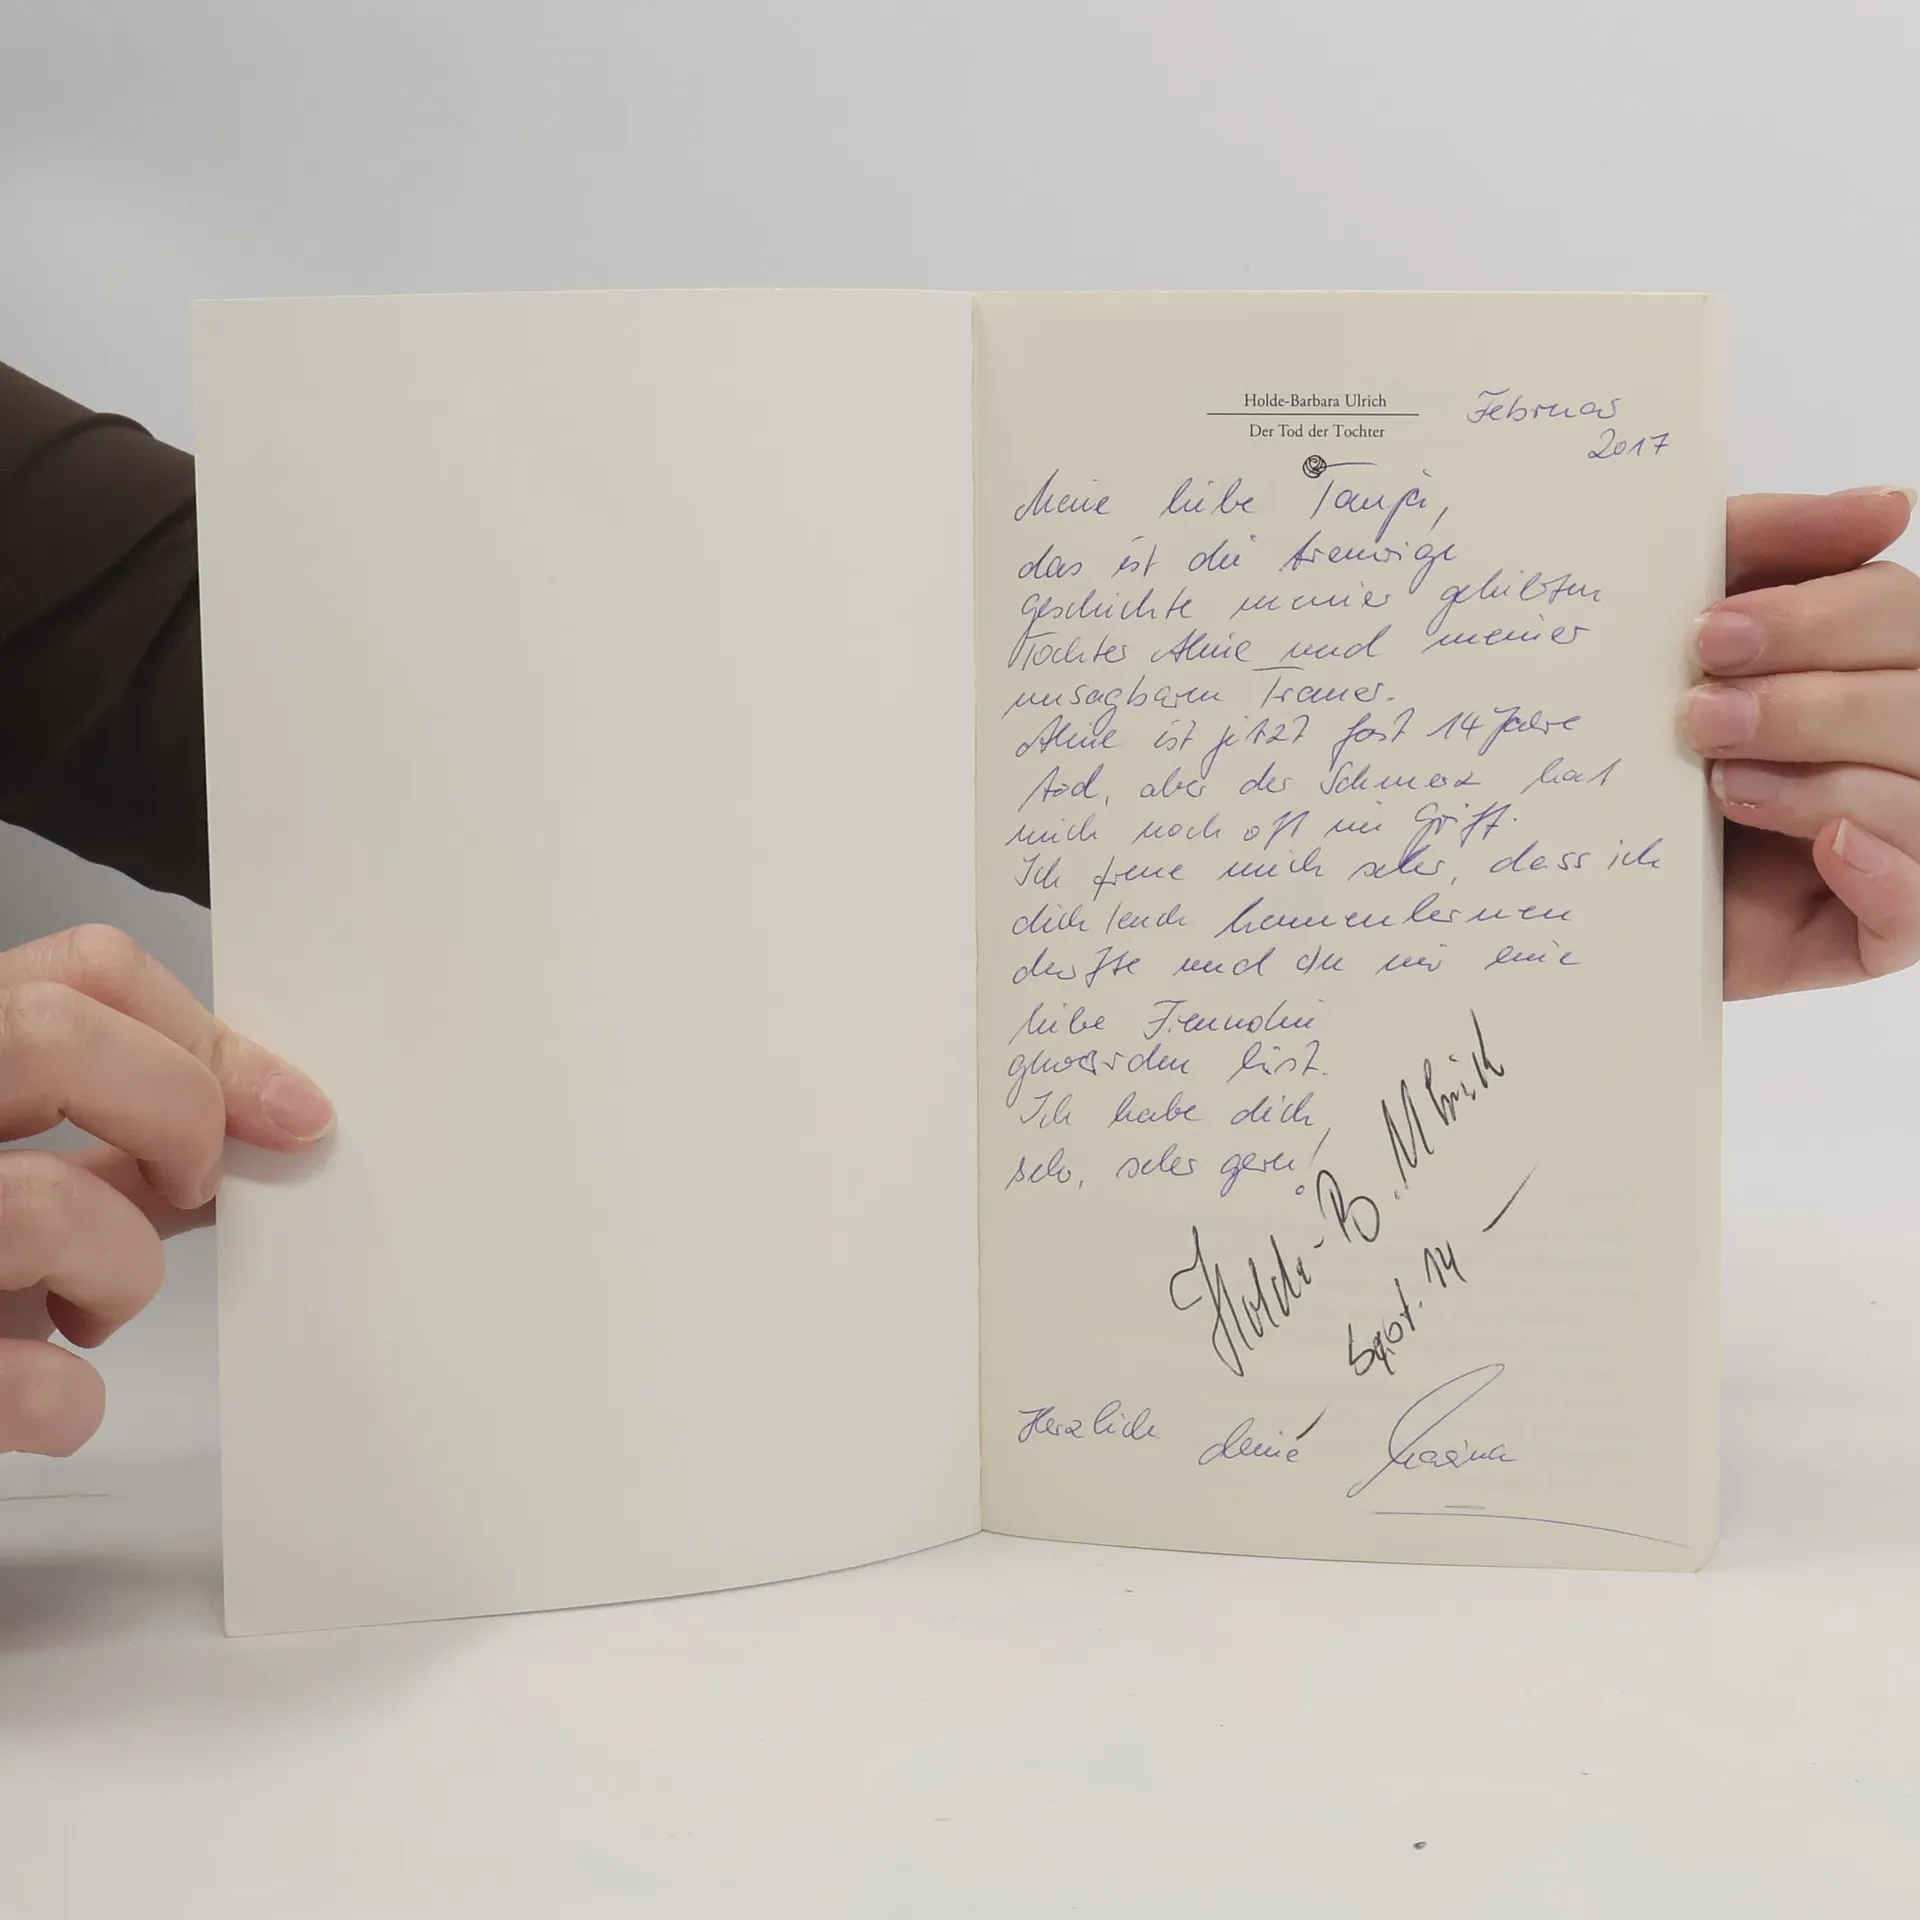 Holde-Barbara Ulrich
Der Tod der Tochter
Februar
2017
Meine liebe Tanja,
das ist die traurige
Geschichte meiner geliebten
Tochter und meiner
unsagbaren Trauer.
ist jetzt fast 14 Jahre
tod, aber der Schmerz hat
mich noch oft im Griff.
Ich freue mich sehr, dass ich
dich/euch kennenlernen
durfte und du mir eine
liebe Freundin
geworden bist.
Ich habe dich,
sehr, sehr gern!
Holde-B. Ulrich
Sept. 14
Herzlich deine